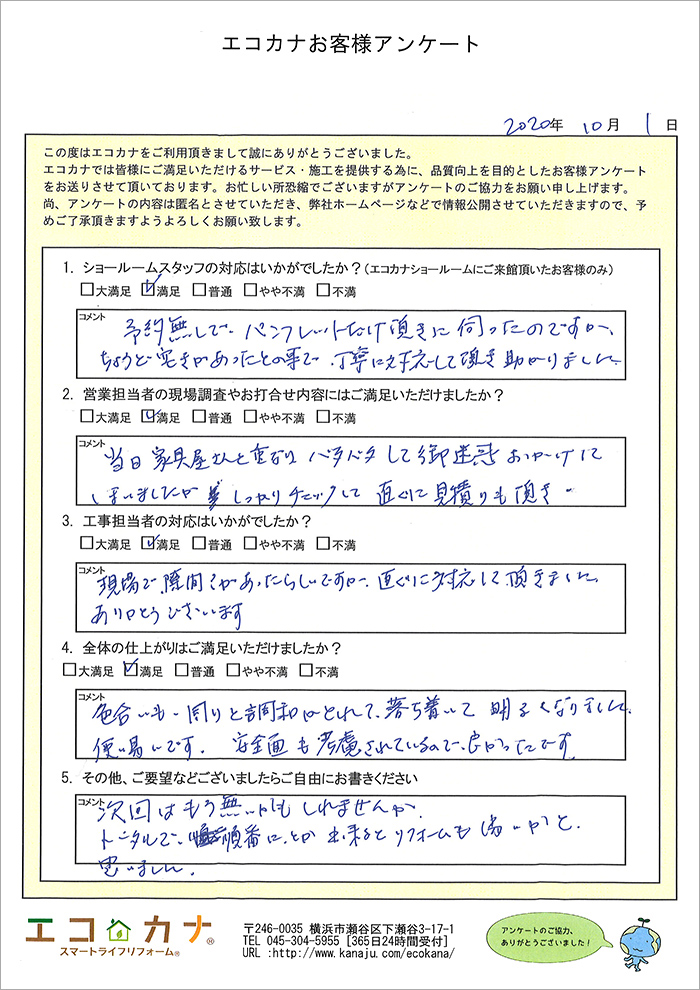 エコカナお客様アンケート
2020年 10月 1日
この度はエコカナをご利用頂きまして誠にありがとうございました。
エコカナでは皆様にご満足いただけるサービス・施工を提供する為に、品質向上を目的としたお客様アンケート
をお送りさせて頂いております。お忙しい所恐縮でございますがアンケートのご協力をお願い申し上げます。
尚、アンケートの内容は匿名とさせていただき、弊社ホームページなどで情報公開させていただきますので、予
めご了承頂きますようよろしくお願い致します。
1. ショールームスタッフの対応はいかがでしたか？(エコカナショールームにご来館頂いたお客様のみ)
□大満足 ☑満足 □普通 □やや不満 □不満
コメント
予約無しで、パンフレットだけ頂きに伺ったのですが、
ちょうど空きがあったとの事で、丁寧に対応して頂き助かりました。
2. 営業担当者の現場調査やお打合せ内容にはご満足いただけましたか？
□大満足 ☑満足 □普通 □やや不満 □不満
コメント
当日家具屋さんと重なり バタバタして御迷惑おかけに
しまいましたが しっかりチェックして 直ぐに見積りも頂き
3. 工事担当者の対応はいかがでしたか？
□大満足 ☑満足 □普通 □やや不満 □不満
コメント
現場で、隙間があったらしいですが、直ぐに対応して頂きました。
ありがとうございます
4. 全体の仕上がりはご満足いただけましたか？
□大満足 ☑満足 □普通 □やや不満 □不満
コメント
色合いも周りと調和がとれて、落ち着いて 明るくなりました。
使い易いです。 安全面も考慮されているので、良かったです。
5. その他、ご要望などございましたらご自由にお書きください
コメント
次回はもう無いかもしれませんが、
トータルで、順番に、とか 出来るとリフォームも 良いかと、
思いました。
エコカナ®
スマートライフリフォーム®
〒246-0035 横浜市瀬谷区下瀬谷3-17-1
TEL 045-304-5955 [365日24時間受付]
URL :http://www.kanaju.com/ecokana/
アンケートのご協力、
ありがとうございました！